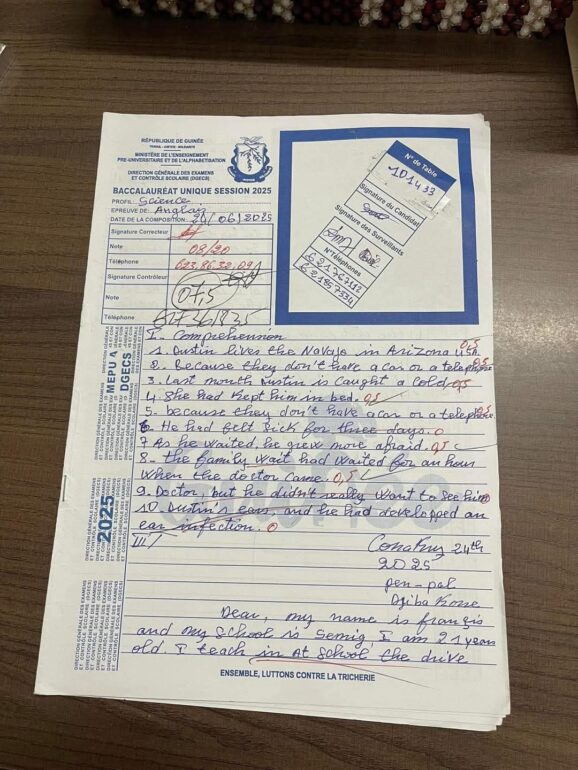 RÉPUBLIQUE DE GUINÉE
TRAVAIL - JUSTICE - SOLIDARITÉ
MINISTÈRE DE L'ENSEIGNEMENT
PRE-UNIVERSITAIRE ET DE L'ALPHABETISATION
DIRECTION GÉNÉRALE DES EXAMENS
ET CONTRÔLE SCOLAIRE (DGECS)
BACCALAURÉAT UNIQUE SESSION 2025
PROFIL: Science
EPREUVE DE: Anglais
DATE DE LA COMPOSITION: 24/06/2025
Signature Correcteur
Note 08/20
Téléphone
Signature Contrôleur
Note 07,5
Téléphone
N° de Table
101433
Signature du Candidat
Signature des Surveillants
N°Téléphones
DIRECTION GÉNÉRALE DES EXAMENS
ET CONTRÔLE SCOLAIRE (DGECS)
2025
MEPU A
DGECS
I. Comprehension
1. Dustin lives the Navajo in Arizona USA 0,5
2. Because they don't have a car or a telephone 0,5
3. Last month Dustin is caught a cold 0,5
4. She had kept him in bed. 0,5
5. because they don't have a car or a telephone 0,5
6. He had felt sick for three days. 0
7 As he waited, he grew more afraid. 0,5
8. the family wait had waited for an hour
when the doctor came. 0,5
9. Doctor, but he didn't really want to see him 0
10. Dustin's ears, and he had developped an
ear infection. 0
III/
Conakry 24th
2025
pen-pal
Djiba
Dear, my name is francis
and my school is Semig I am 21 years
old. I teach in At School the drive
ENSEMBLE, LUTTONS CONTRE LA TRICHERIE